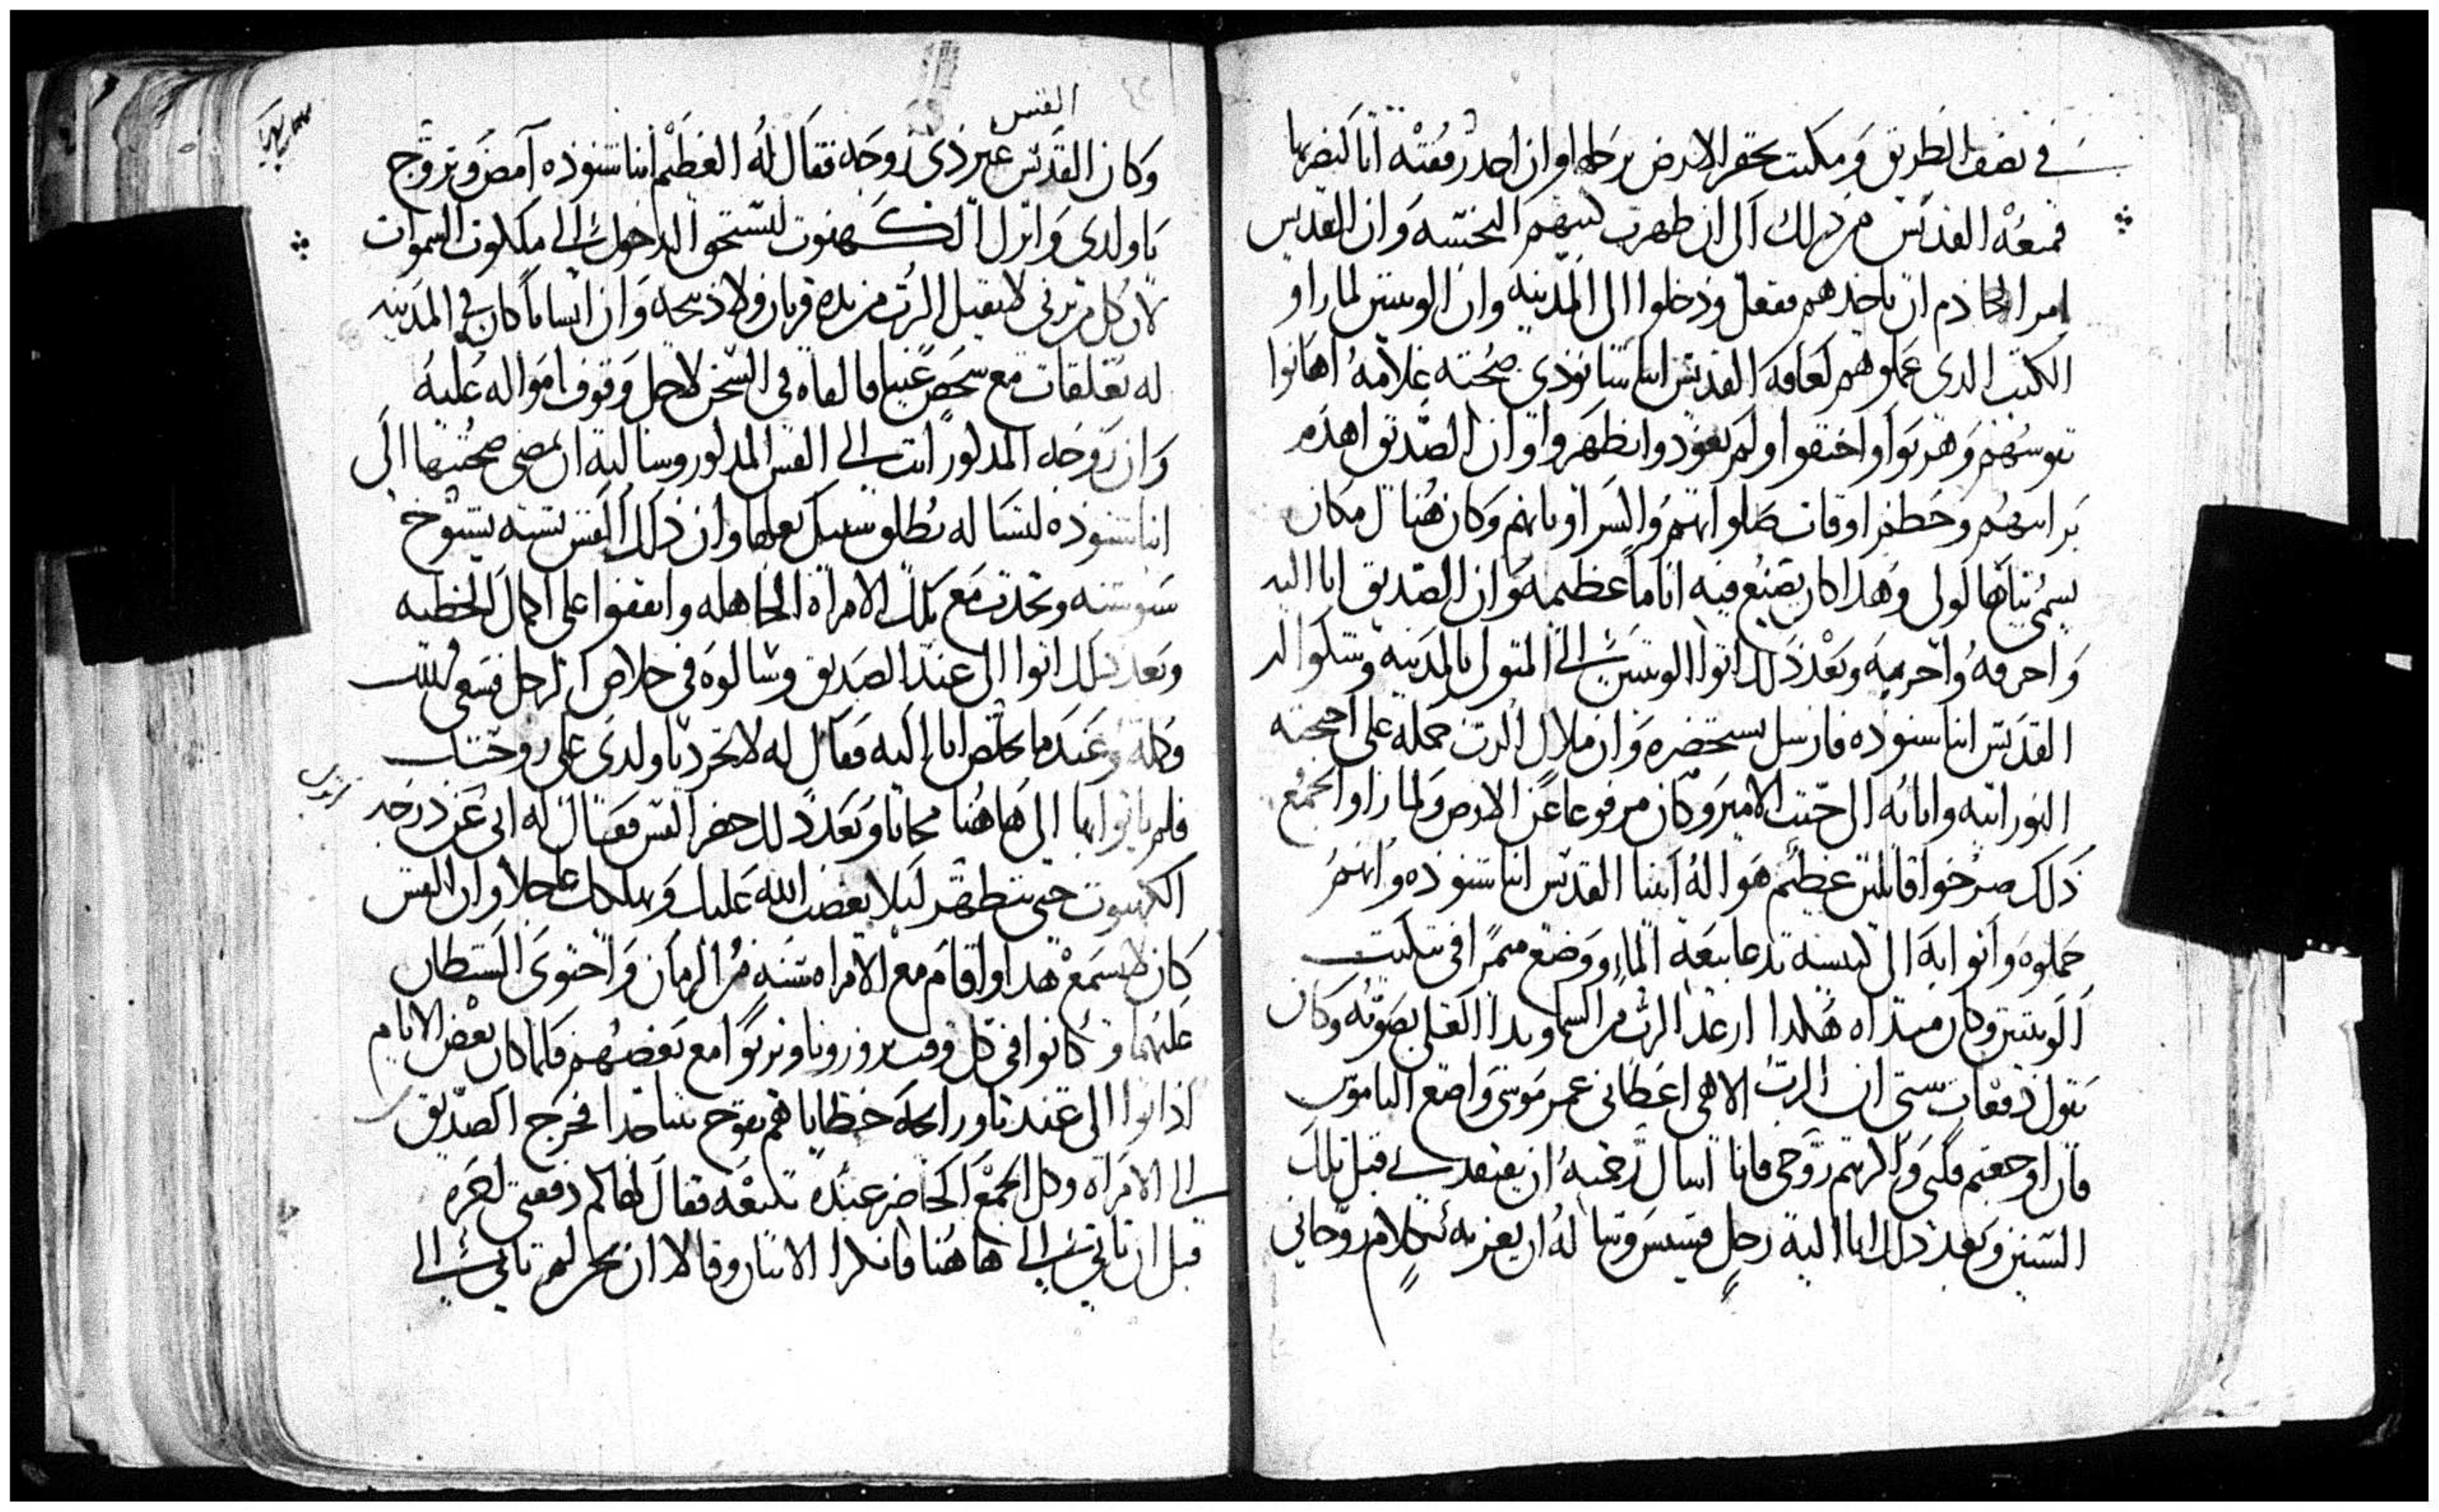 في نصف الطريق ومكثت تحفر الارض برجلها وان احد رفقته اتا ليضربها
فمنعه القديس من ذلك الى ان ظهرت كتبهم النجسه وان القديس
امر الخادم ان ياخدهم ففعل ودخلوا الى المدينه وان الوسنين لما راو
الكتب الدي عملوهم لعاقه القديس انبا شنوذي صحبته غلامه اهانوا
نفوسهم وهربوا واختفوا ولم يعودوا يظهروا وان الصديق اهدم
برابيهم وحطم اوقات صلواتهم والسر اوتانهم وكان هناك مكان
يسمى بناها لولى وهدا كان يصنع فيه اتاما عظيمه وان الصديق اتا اليه
واحرقه واخربه وبعد ذلك اتوا الوسنين الى المتولى بالمدينه وشكوا له
القديس انبا شنوده فارسل يستحضره وان ملاك الرب حمله على اجنحته
النورانيه واتا به الى حيث الامير وكان مرفوعا عن الارض ولما راوا الجمع
ذلك صرخوا قايلين عظيم هوا اله ابينا القديس انبا شنوده وانهم
حملوه واتوا به الى كنيسه تدعا بيعة الماء ووضع ميمرا في تبكيت
الوسنين وكان مبتداه هكدا ارعد الرب من السما وبدا العلي بصوته وكان
يقول دفعات ستى ان الرب الاهي اعطاني عمر موسى واضع الناموس
فان اوجعتم قلبي واكربتم روحي فانا اسال رحمته ان يفتقدني قبل تلك
السنين وبعد ذلك اتا اليه رجل قسيس وساله ان يعزيه بكلام روحاني
القس
وكان القديس غير ذي زوجه فقال له العظيم انبا شنوده امض وتزوج
يا ولدي واترك الكهنوت لتستحق الدخول الى ملكوت السموات
لان كل من يزني لا يقبل الرب من يده قربان ولا ذبيحه وان انسانا كان في المدينه
له تعلقات مع شخص غنيا فالقاه في السجن لاجل وقوف امواله عليه
وان زوجه المدكور اتت الى القس المدكور وسالته ان يمضي صحبتها الى
انبا شنوده لتساله يطلق سبيل بعلها وان ذلك القس بنيته يشوخ
سوسنه وتحدث مع تلك الامراه الجاهله واتفقوا على اكمال الخطيه
وبعد ذلك اتوا الى عند الصديق وسالوه في خلاص الرجل فسعى
وكلمه وعندما تخلص اتا اليه فقال له لا تحرد يا ولدي على زوجتك
فلم ياتوا بها الى هاهنا مجانا وبعد ذلك حضر القس فقال له انى عن درجه
الكهنوت حتى تتطهر ليلا يغضب الله عليك ويهلكك عاجلا وان القس
كان لا يسمع هدا واقام مع الامراه سنه من الزمان واحتوى الشيطان
عليهما وكانوا في كل وقت يزوروا ويتبركوا مع بعضهم فلما كان بعض الايام
اذ اتوا الى عندنا ورايحه خطاياهم تفوح نتنا جدا فخرج الصديق
الى الامراه وكل الجمع الحاضر عنده تتبعه فقال لهاكم دفعتي لعزه
قبل ان تاتي الى هاهنا فانكرا الاتنان وقالا ان نحن لم ناتي الى